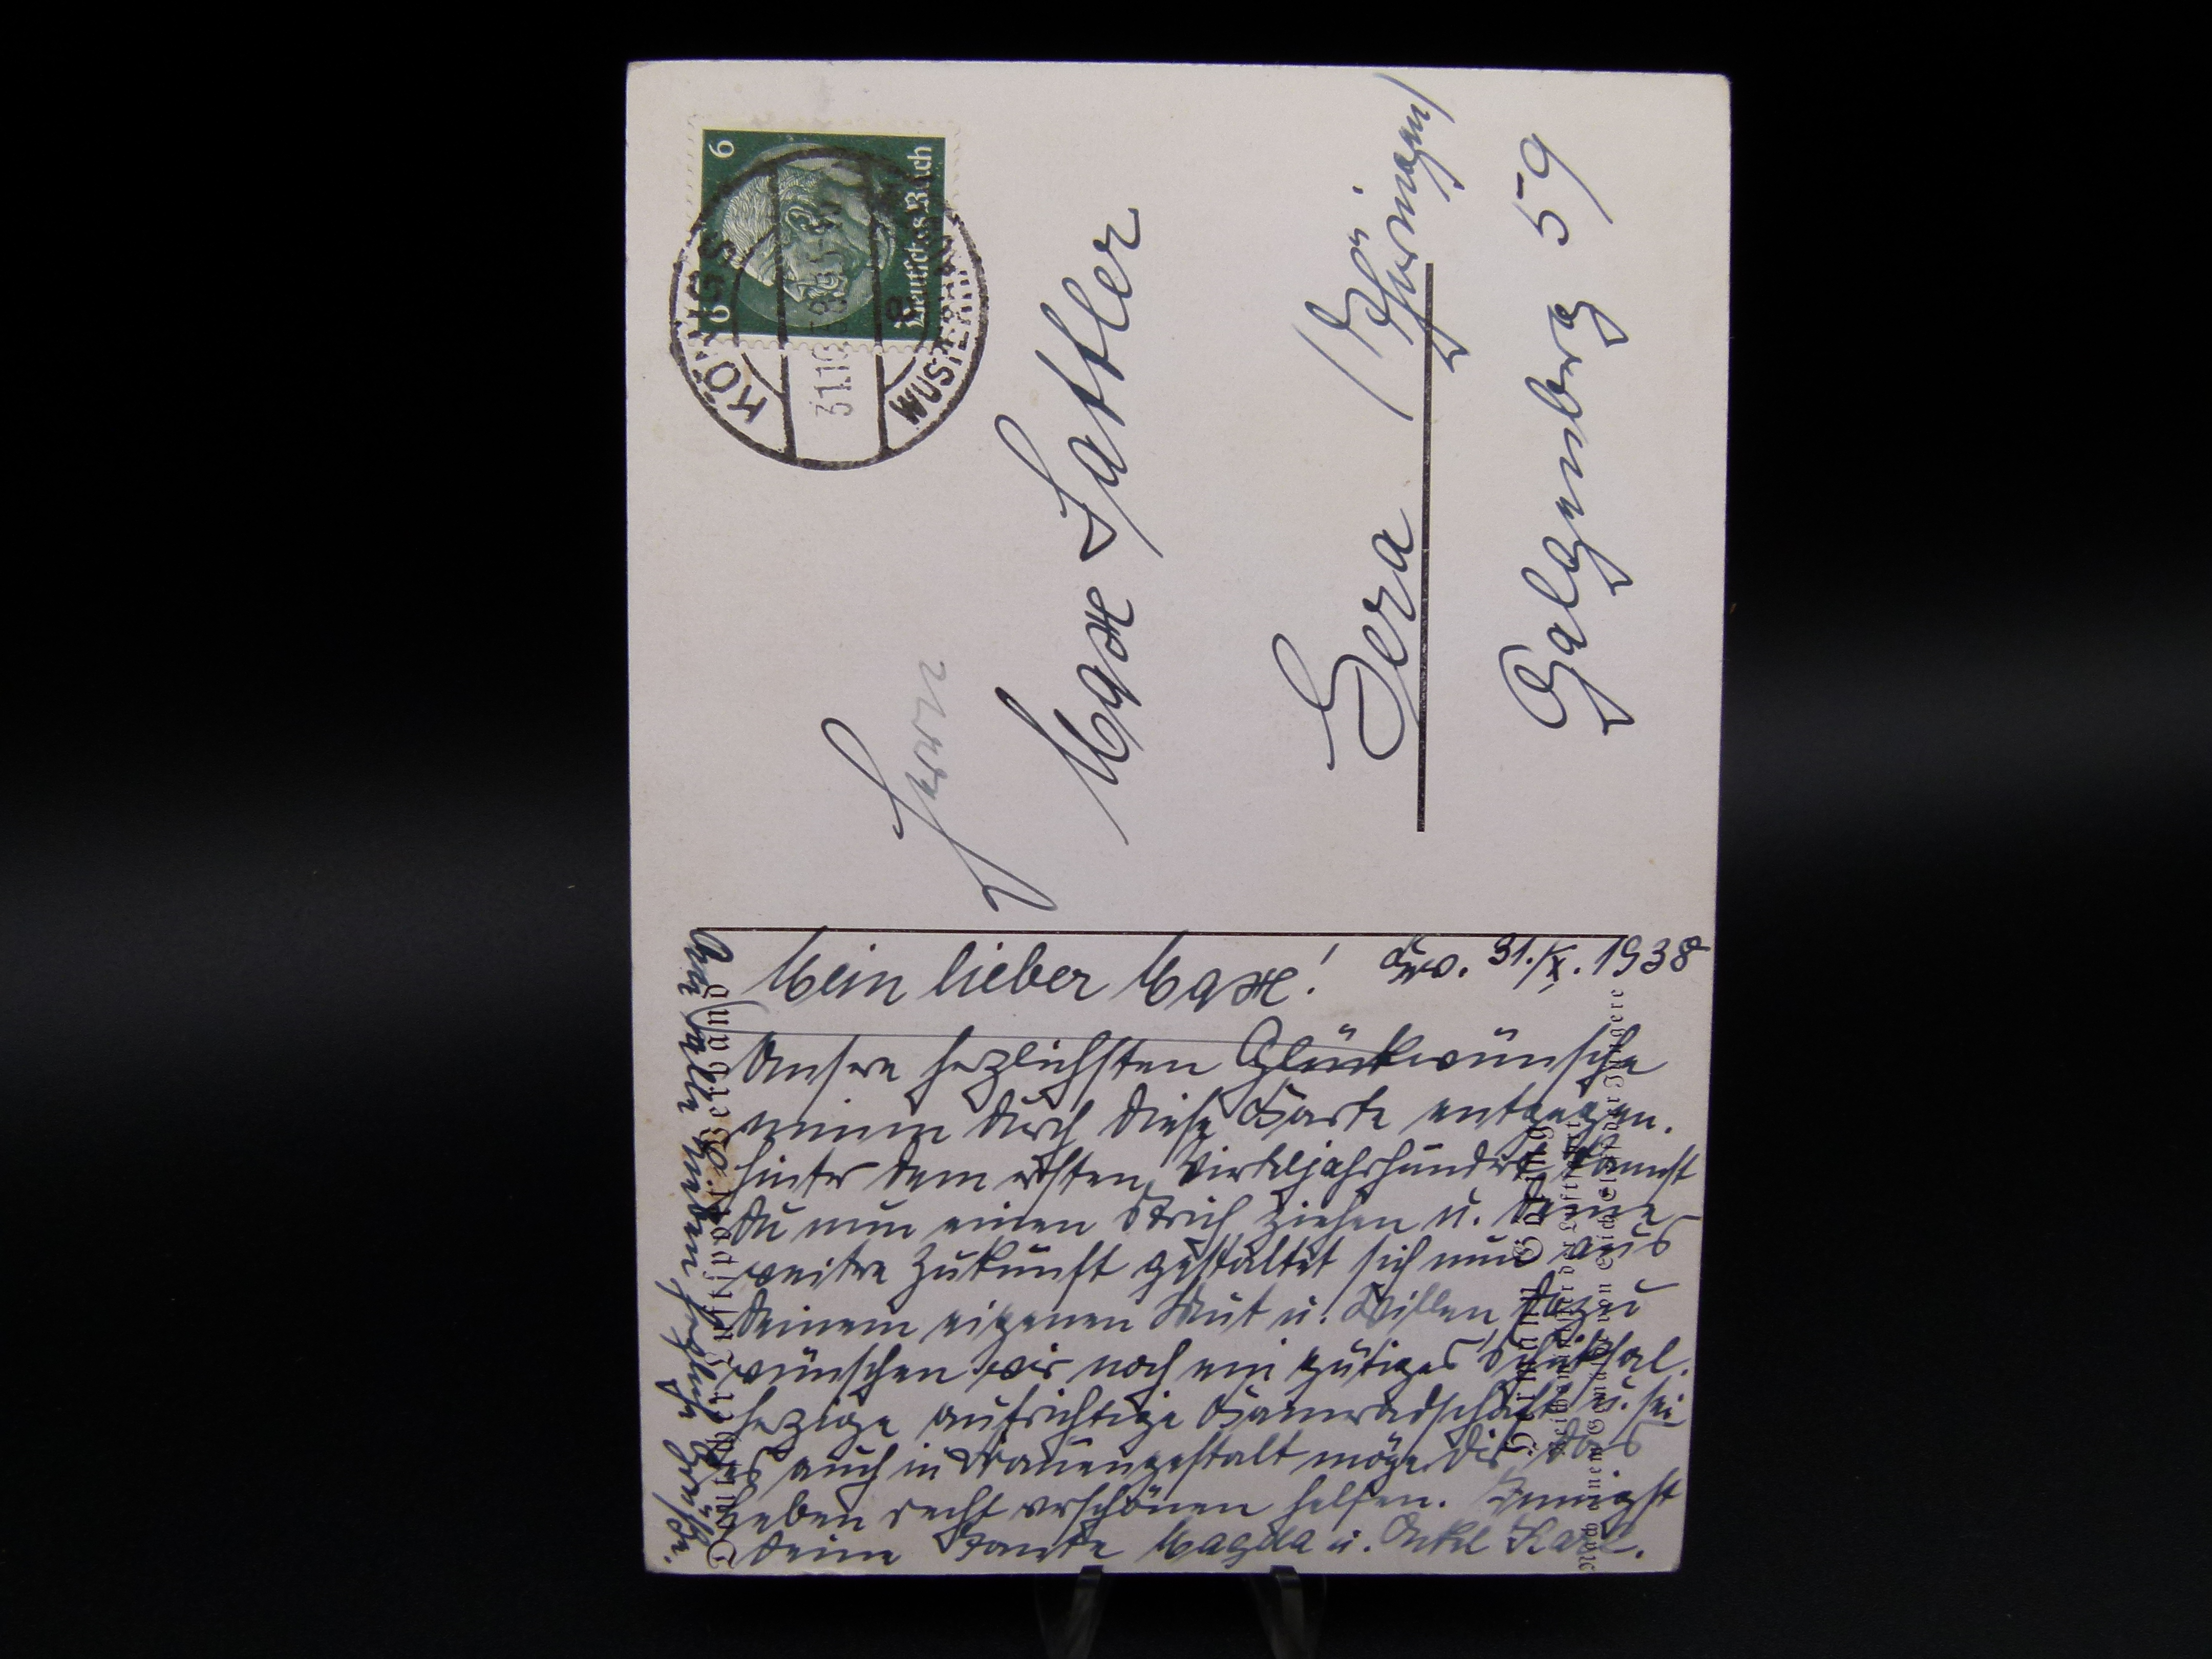 Mein lieber Max!
Kgw. 31./X. 1938
Unsere herzlichsten Glückwünsche
nimm durch diese Karte entgegen.
Hinter dem ersten Vierteljahrhundert kannst
Du nun einen Strich ziehen u. Deine
weitere Zukunft gestaltet sich nun aus
Deinem eigenen Mut u. Willen, dazu
wünschen wir noch ein gütiges Schicksal.
Herzige aufrichtige Kameradschaft u. sei
es auch in Frauengestalt möge Dir das
Leben recht verschönen helfen. Innigst
Deine Tante Magda u. Onkel Karl.
herzliche Grüße.
Deutscher Luftsport-Verband
Hermann Göring
Reichsminister der Luftfahrt
Nach einem Gemälde von
KÖNIGS
WUSTERHAUSEN
31.10.38
a
6
6
Deutsches Reich
Herrn
Max Sattler
Gera (Thüringen)
Galgenberg 59